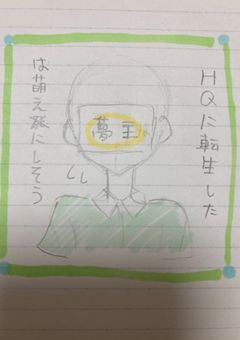 HQに転生した
夢主
は萌え にしそう